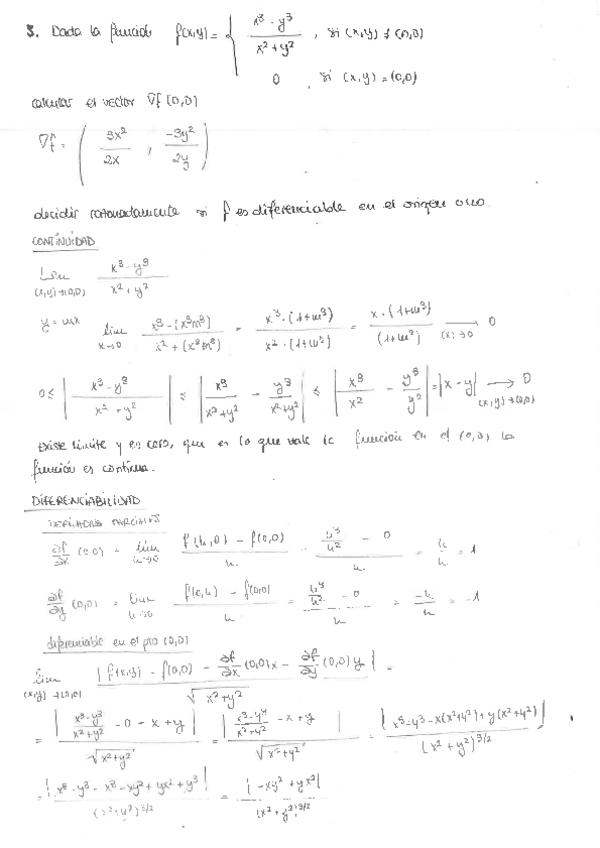 3. Dada la función f(x,y) = { x³ - y³ / x² + y² , si (x,y) ≠ (0,0)
0 , si (x,y) = (0,0)
calcular el vector ∇f (0,0)
∇f = ( 3x² / 2x , -3y² / 2y )
decidir razonadamente si f es diferenciable en el origen o no.
CONTINUIDAD
Lim (x,y)→(0,0) x³ - y³ / x² + y²
y = mx lim x→0 x³ - (x³m³) / x² + (x²m²) = x³ · (1+m³) / x² · (1+m²) = x · (1+m³) / (1+m²) → (x→0) 0
0 ≤ | x³ - y³ / x² + y² | ≤ | x³ / x² + y² - y³ / x² + y² | ≤ | x³ / x² - y³ / y² | = |x - y| → (x,y)→(0,0) 0
Existe límite y es cero, que es lo que vale la función en el (0,0) la
función es continua.
DIFERENCIABILIDAD
DERIVADAS PARCIALES
∂f/∂x (0,0) = lim h→0 f(h,0) - f(0,0) / h = h³/h² - 0 / h = h / h = 1
∂f/∂y (0,0) = lim h→0 f(0,h) - f(0,0) / h = h³/h² - 0 / h = -h / h = -1
diferenciable en el pto (0,0)
lim (x,y)→(0,0) | f(x,y) - f(0,0) - ∂f/∂x (0,0)x - ∂f/∂y (0,0) y | / √x² + y² =
= | x³ - y³ / x² + y² - 0 - x + y | / √x² + y² = | x³ - y³ / x² + y² - x + y | / √x² + y² = | x³ - y³ - x(x² + y²) + y(x² + y²) | / (x² + y²)^3/2
= | x³ - y³ - x³ - xy² + yx² + y³ | / (x² + y²)^3/2 = | -xy² + yx² | / (x² + y²)^3/2